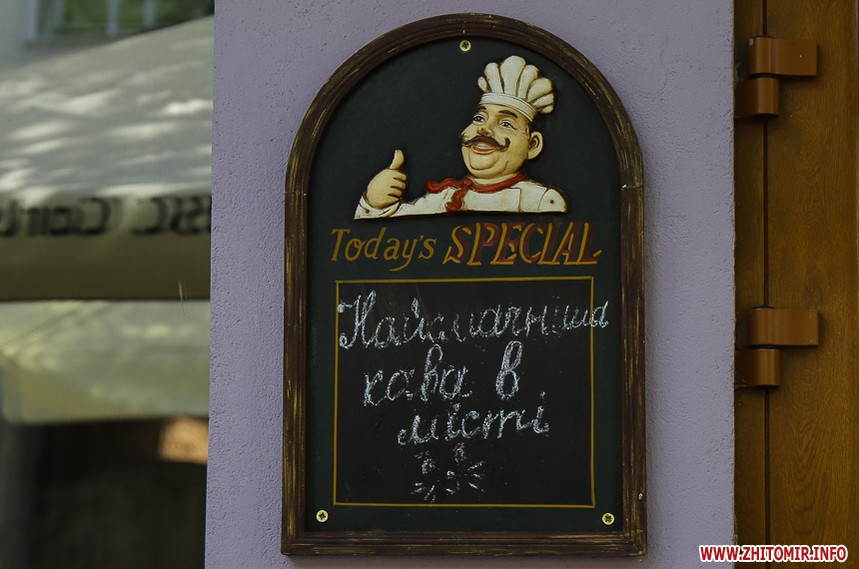 Today's SPECIAL
Найсмачніша
кава в
місті
WWW.ZHITOMIR.INFO